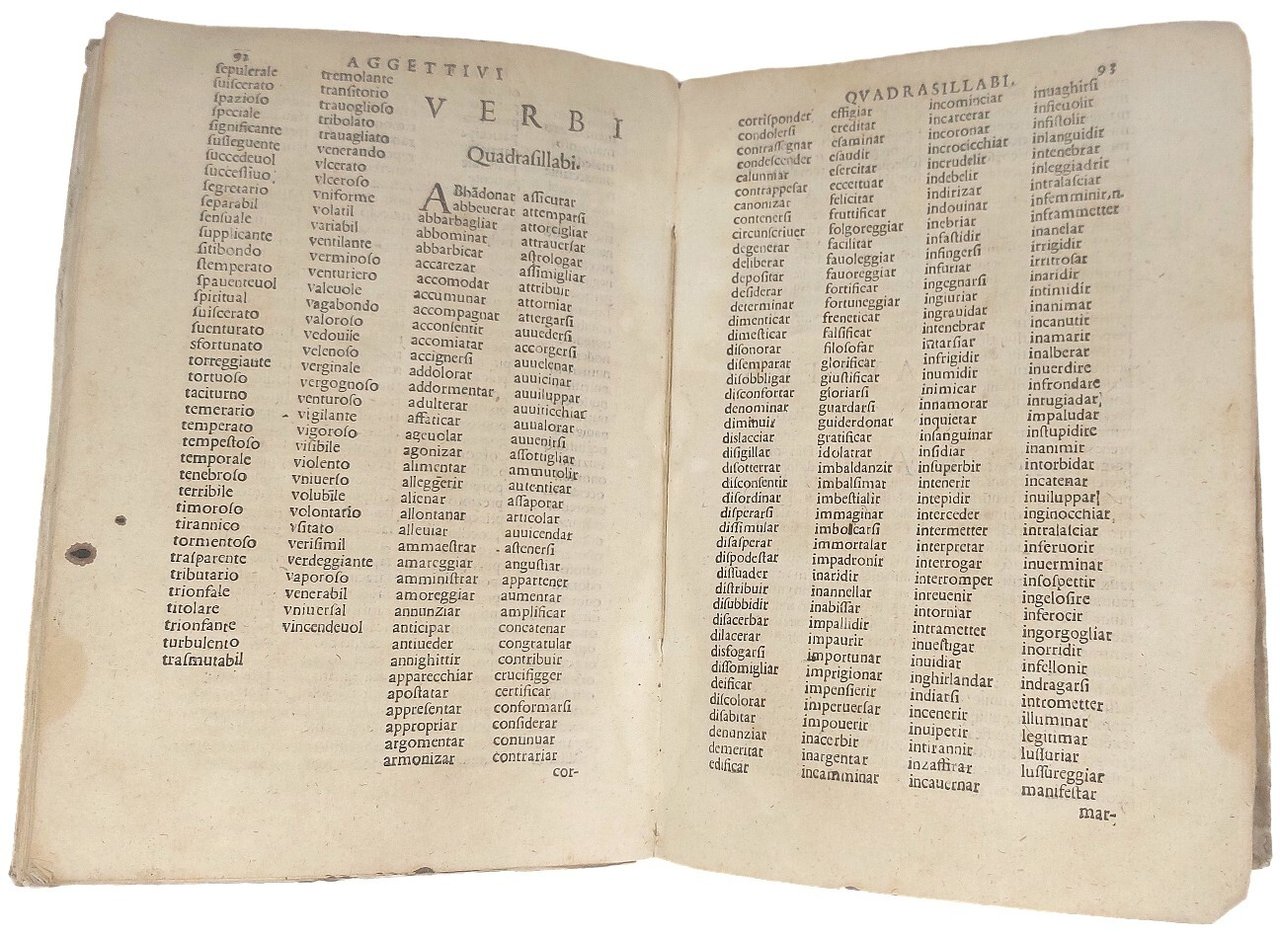 92
AGGETTIVI
ſepulerale
ſuiſcerato
ſpazioſo
ſpeciale
ſignificante
ſuſſeguente
ſuccedeuol
ſucceſſiuo
ſegretario
ſeparabil
ſenſuale
ſupplicante
ſitibondo
ſtemperato
ſpauenteuol
ſpiritual
ſuiſcerato
ſuenturato
sfortunato
torreggiante
tortuoſo
taciturno
temerario
temperato
tempeſtoſo
temporale
tenebroſo
terribile
timoroſo
tirannico
tormentoſo
traſparente
tributario
trionfale
titolare
trionfante
turbulento
traſmutabil
tremolante
tranſitorio
trauoglioſo
tribolato
trauagliato
venerando
vlcerato
vlceroſo
vniforme
volatil
variabil
ventilante
verminoſo
venturiero
valeuole
vagabondo
valoroſo
vedouile
velenoſo
verginale
vergognoſo
venturoſo
vigilante
vigoroſo
viſibile
violento
vniuerſo
volubile
volontario
vſitato
veriſimil
verdeggiante
vaporoſo
venerabil
vniuerſal
vincendeuol
VERBI
Quadraſillabi.
ABhãdonar
abbeuerar
abbarbagliar
abbominar
abbarbicar
accarezar
accomodar
accumunar
accompagnar
acconſentir
accomiatar
accignerſi
addolorar
addormentar
adulterar
affaticar
ageuolar
agonizar
alimentar
alleggerir
alienar
allontanar
alleuiar
ammaeſtrar
amareggiar
amminiſtrar
amoreggiar
annunziar
anticipar
antiueder
annighittir
apparecchiar
apoſtatar
appreſentar
appropriar
argomentar
armonizar
aſſicurar
attemparſi
attorcigliar
attrauerſar
aſtrologar
aſſimigliar
attribuir
attorniar
attergarſi
auuederſi
accorgerſi
auuelenar
auuicinar
auuiluppar
auuiticchiar
auualorar
auuenirſi
aſſottigliar
ammutolir
autenticar
aſſaporar
articolar
auuicendar
aſtenerſi
anguſtiar
appartener
aumentar
amplificar
concatenar
congratular
contribuir
crucifigger
certificar
conformarſi
conſiderar
continuar
contrariar
cor-
QVADRASILLABI.
93
corriſponder
condolerſi
contraſſegnar
condeſcender
calunniar
contrappeſar
canonizar
contenerſi
circunſcriuer
degenerar
deliberar
depoſitar
deſiderar
determinar
dimenticar
dimeſticar
diſonorar
diſemparar
diſobbligar
diſconfortar
denominar
diminuir
diſlacciar
diſigillar
diſotterrar
diſconſentir
diſordinar
diſperarſi
diſſimular
diſaſperar
diſpodeſtar
diſſuader
diſtribuir
diſubbidir
diſacerbar
dilacerar
disfogarſi
diſſomigliar
deificar
diſcolorar
diſabitar
denunziar
demeritar
edificar
effigiar
ereditar
eſaminar
eſaudir
eſercitar
eccettuar
felicitar
fruttificar
folgoreggiar
facilitar
fauoleggiar
fauoreggiar
fortificar
fortuneggiar
freneticar
falſificar
filoſofar
glorificar
giuſtificar
gloriarſi
guardarſi
guiderdonar
gratificar
idolatrar
imbaldanzir
imbalſimar
imbeſtialir
immaginar
imbolcarſi
immortalar
impadronir
inaridir
inannellar
inabiſſar
impallidir
impaurir
importunar
imprigionar
impenſierir
imperuerſar
impouerir
inacerbir
inargentar
incamminar
incominciar
incarcerar
incoronar
incrocicchiar
incrudelir
indebelir
indirizar
indouinar
inebriar
infaſtidir
infingerſi
infuriar
ingegnarſi
ingiuriar
ingrauidar
intenebrar
intarſiar
infrigidir
inumidir
inimicar
innamorar
inquietar
inſanguinar
inſidiar
inſuperbir
intenerir
intepidir
interceder
intermetter
interpretar
interrogar
interromper
inreuenir
intorniar
intrametter
inueſtigar
inuidiar
inghirlandar
indiarſi
incenerir
inuiperir
intirannir
inzaffirar
incauernar
inuaghirſi
inſieuolir
infiſtolir
inlanguidir
intenebrar
inleggiadrir
intralaſciar
infemminir,n.
inframmetter
inanelar
irrigidir
irritroſar
inaridir
intimidir
inanimar
incanutir
inamarir
inalberar
inuerdire
infrondare
intugiadar
impaludar
inſtupidire
inanimir
intorbidar
incatenar
inuiluppar
inginocchiar
intralaſciar
inferuorir
inuerminar
inſoſpettir
ingeloſire
inferocir
ingorgogliar
inorridir
infellonir
indragarſi
intrometter
illuminar
legitimar
luſſuriar
luſſureggiar
manifeſtar
mar-